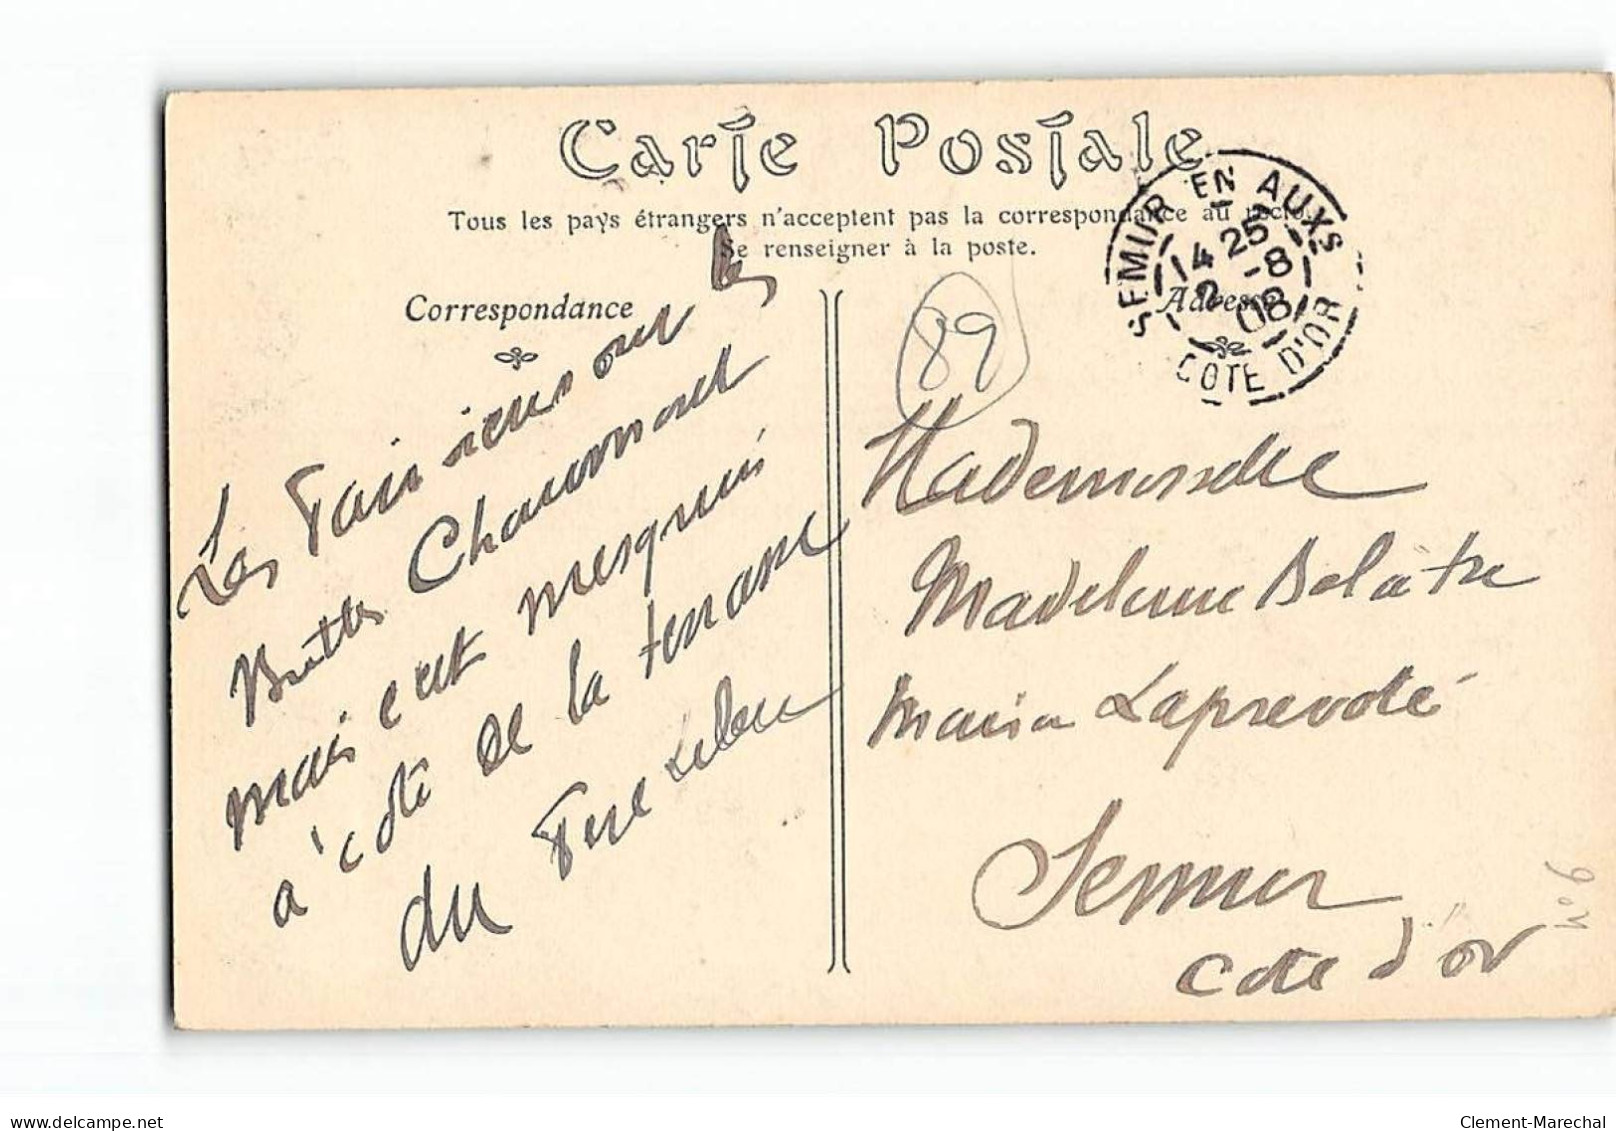 Carte Postale
Tous les pays étrangers n'acceptent pas la correspondance au recto.
Se renseigner à la poste.
Correspondance
Adresse
SEMUR EN AUXS
14 25
2 -8
08
COTE D'OR
89
Les Parisiens ont les
Buttes Chaumont
mais c'est mesquin
à côté de la terrasse
du Père Leleu
Mademoiselle
Madeleine Delatre
Maison Laprevoté
Semur
Cote d'or
delcampe.net
Clement-Marechal